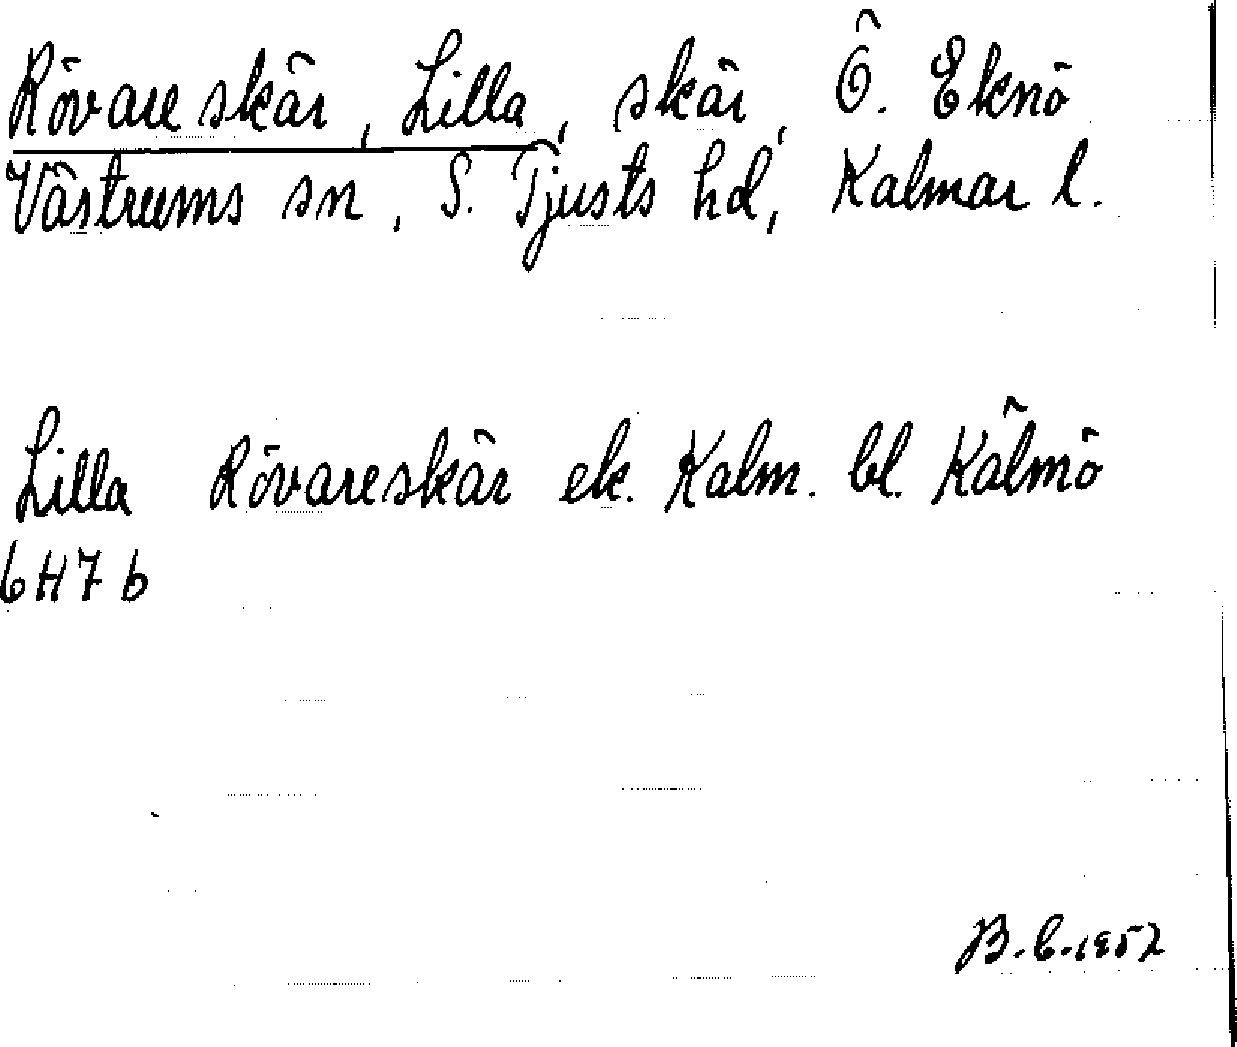 Rövareskär, Lilla, skär, Ö. Eknö
Västrums sn, S. Tjusts hd, Kalmar l.
Lilla Rövareskär ek. Kalm. bl. Kälmö
6H7b
B.b.1952